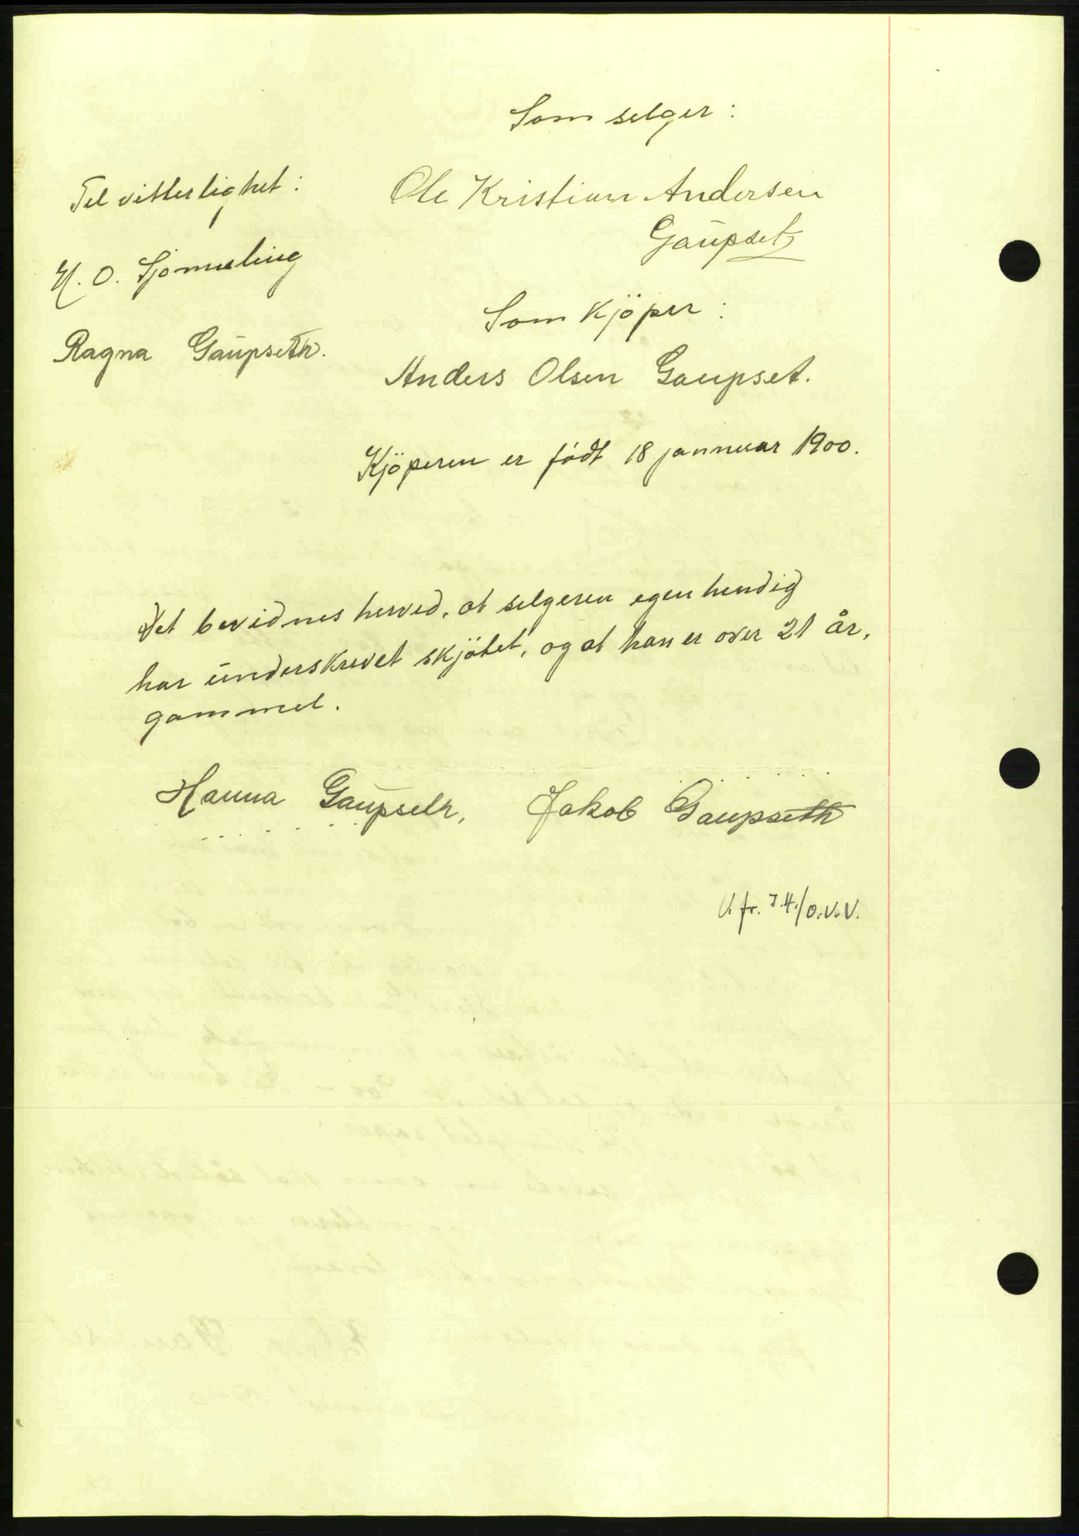 Som selger:
Til vitterlighet:
Ole Kristian Andersen
Gaupset
H. O. Sjømæling
Som kjöper:
Ragna Gaupseth.
Anders Olsen Gaupset.
Kjöperen er födt 18 januar 1900.
Det bevidnes herved, at selgeren egenhendig
har underskrevet skjötet, og at han er over 21 år,
gammel.
Hanna Gaupseth, Jakob Gaupseth
V. fr. 74./O.V.V.